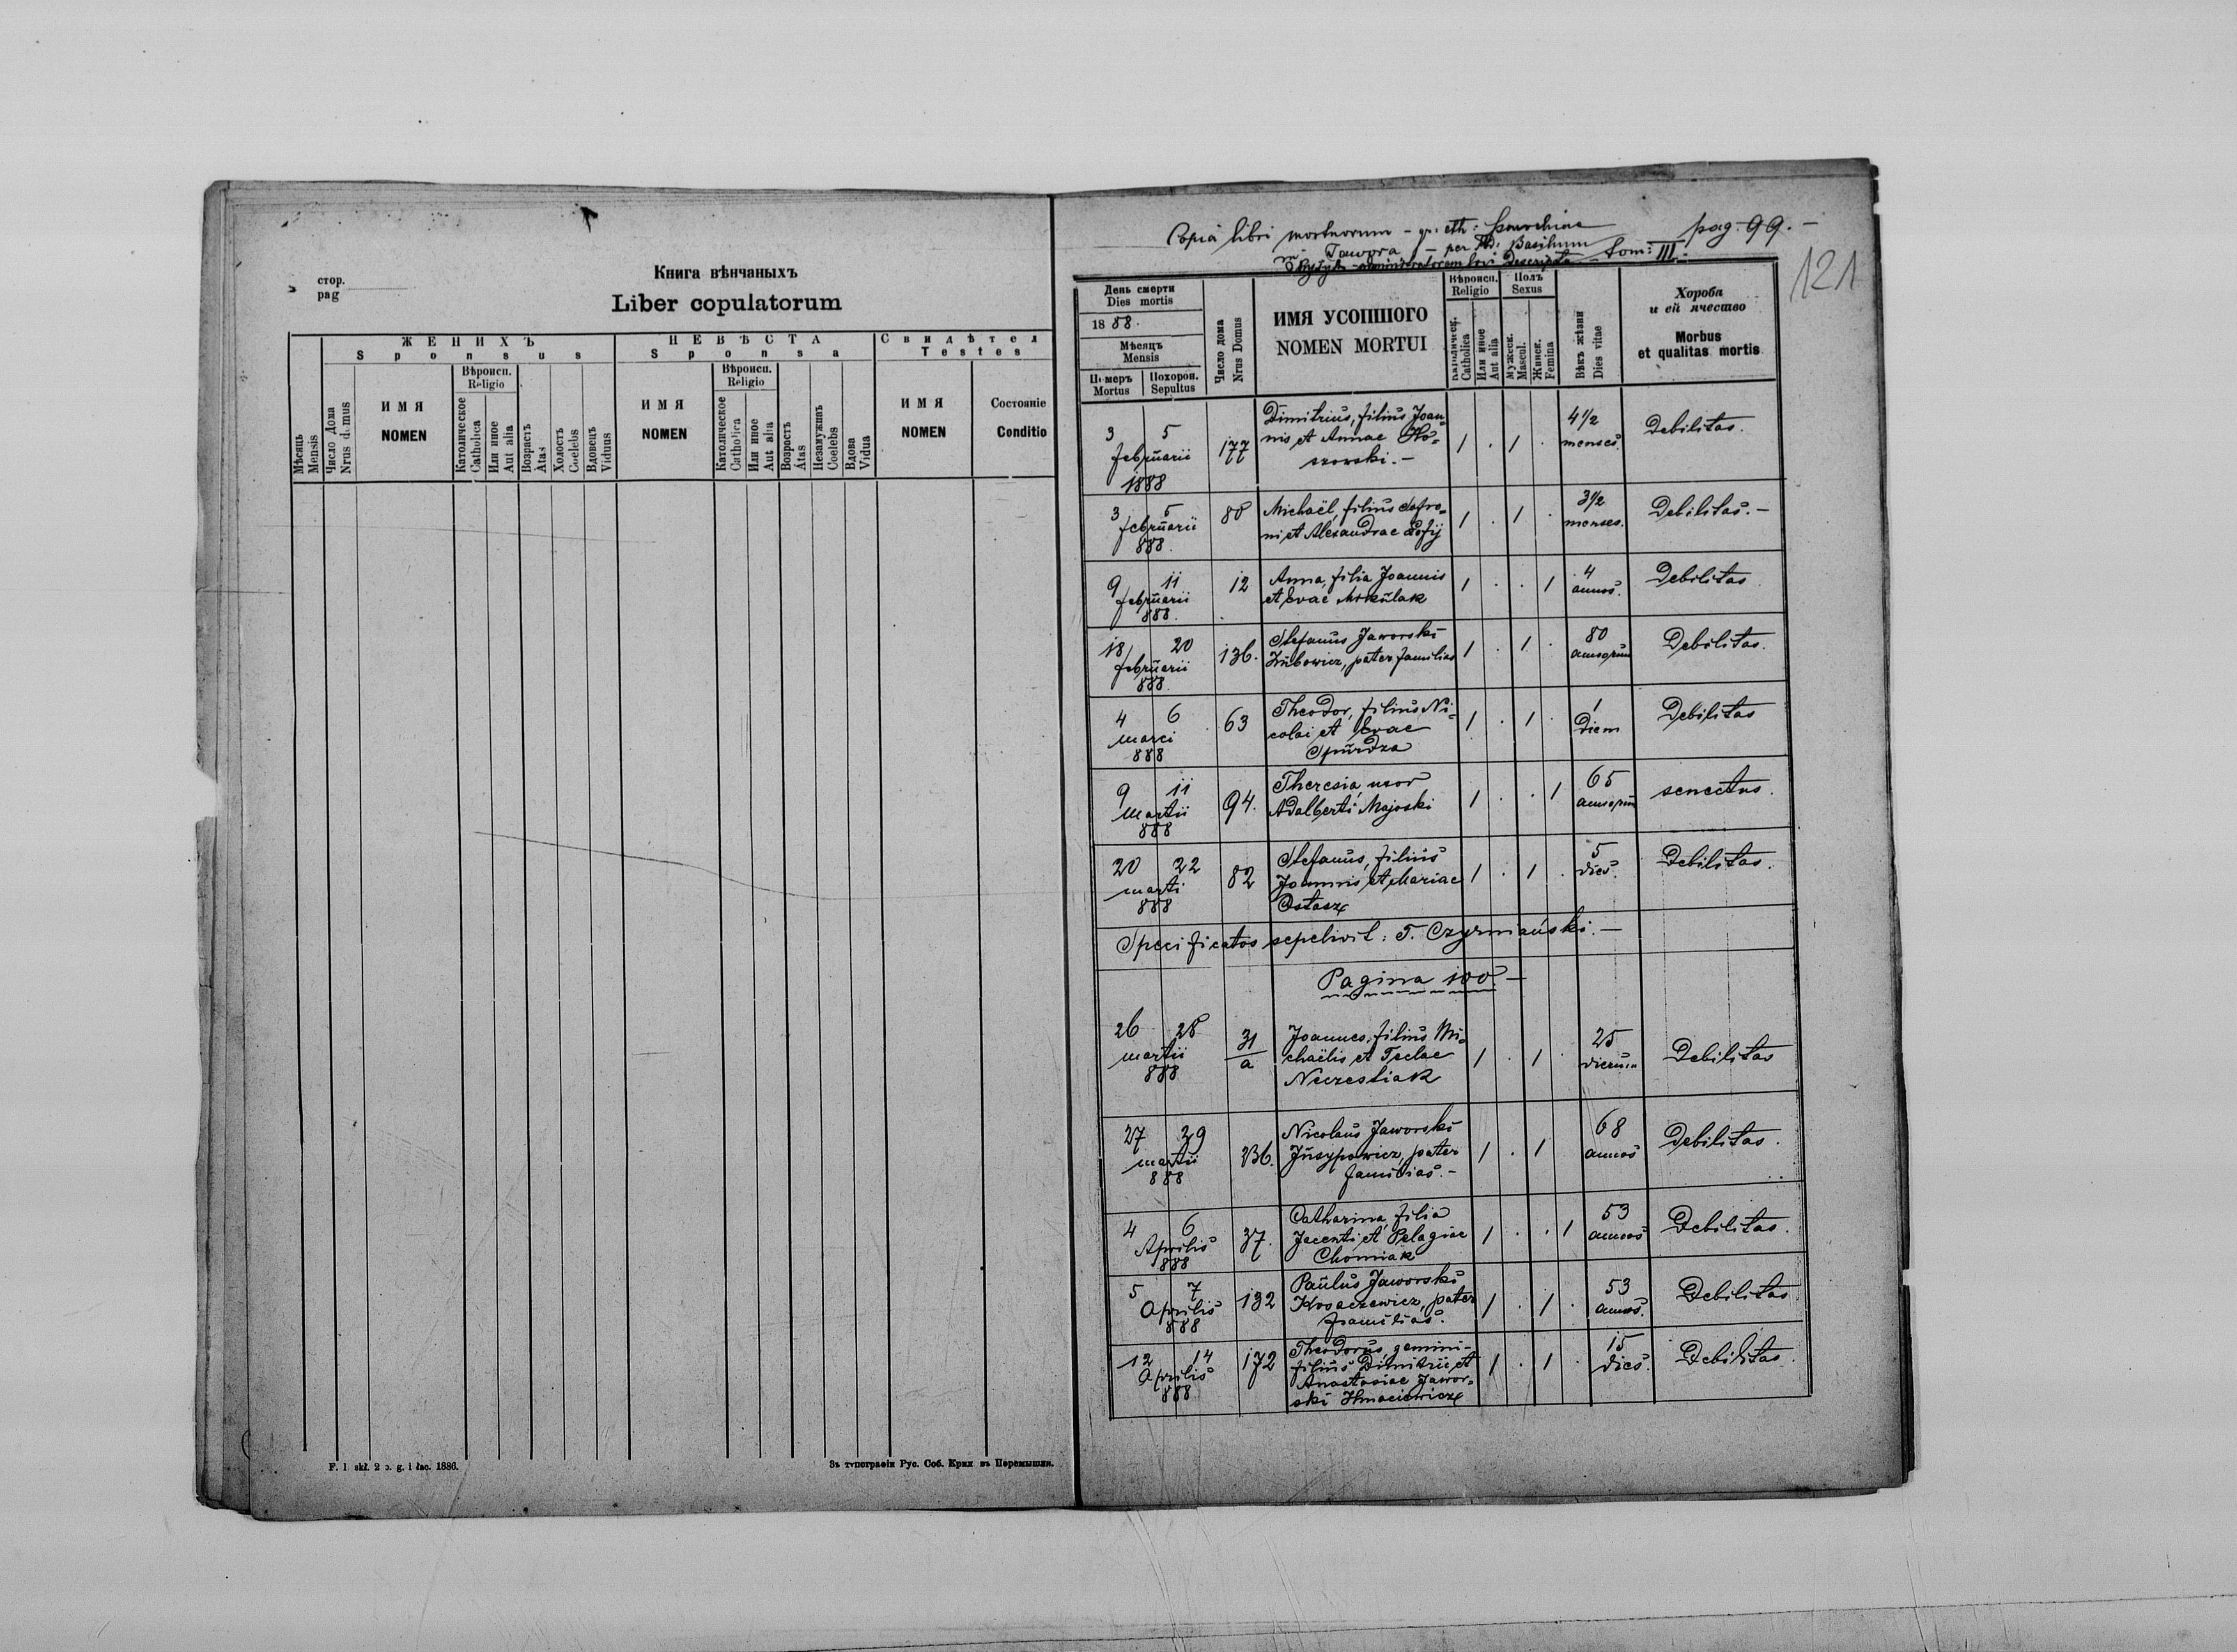 стор.
pag
Книга вѣнчаныхъ
Liber copulatorum
ЖЕНИХЪ
Sponsus
НЕВѢСТА
Sponsa
Свидѣтел
Testes
Мѣсяць
Mensis
Число Дома
Nrus domus
ИМЯ
NOMEN
Вѣроисп.
Religio
Католическое
Catholica
Или иное
Aut alia
Возрастъ
Átas
Холостъ
Coelebs
Вдовецъ
Viduus
ИМЯ
NOMEN
Вѣроисп.
Religio
Католическое
Catholica
Или иное
Aut alia
Возрастъ
Átas
Незамужнаъ
Coelebs
Вдова
Vidua
ИМЯ
NOMEN
Состоянiе
Conditio
F. 1 skł. 2 o. g. i łac. 1886.
Зъ типографiи Рус. Соб. Крил въ Перемышли.
Copia libri mortuorum - gr: cth: pag: 99. -
Jawora - per Ad: Basilium
administratorem loci Descripta - tom: III.
121
День смерти
Dies mortis
1888.
Мѣсяцъ
Mensis
Померъ
Mortus
Похорон.
Sepultus
Число дома
Nrus Domus
ИМЯ УСОПШОГО
NOMEN MORTUI
Вѣроисп.
Religio
Catholica
Или иное
Aut alia
Полъ
Sexus
Мужеск.
Mascul.
Жинск.
Femina
Вѣкъ жѣзни
Dies vitae
Хороба
и ей ячество
Morbus
et qualitas mortis
3 5 177 Dimitrius, filius Joan- 1 . 1 . 4 1/2 Debilitas.
februarii nis et Annae Ho= menses.
1888 szowski. -
3 5 80 Michaël, filius Sofro= 1 . 1 . 3 1/2 Debilitas. -
februarii ni et Alexandrae menses.
888.
9 11 12 Anna, filia Joannis 1 . . 1 4 Debilitas
februarii et Evae Mikulak annos.
888.
18 20 136. Stefanus Jaworski 1 . 1 . 80 Debilitas.
februarii Zubowicz, pater familias annorum
888.
4 6 63 Theodor, filius Ni- 1 . 1 . 1 Debilitas
marci colai et Evae Diem
888 Spurdza
9 11 94. Theresia, uxor 1 . . 1 65 senectus.
Martii Adalberti Majoski annorum
888
20 22 82 Stefanus, filius 1 . 1 . 5 Debilitas.
marti Joannis et Mariae dies.
888 Ostasz
Specificatos sepelivit: T. Czyrniański. -
Pagina 100. -
26 28 31/a Joannes, filius Mi- 1 . 1 . 25 Debilitas
martii chaëlis et Teclae dierum
888 Neczestiak
27 29 236. Nicolaus Jaworski 1 . 1 68 Debilitas.
martii Jusypowicz, pater annos
888 familias. -
4 6 37. Catharina, filia 1 . . 1 53 Debilitas.
Aprilis Jacenti et Pelagiae annos
888 Chomiak
5 7 132 Paulus Jaworski 1 . 1 . 53 Debilitas
Aprilis Kosaczewicz, pater annos.
888 familias.
12 14 172 Theodorus, gemini- 1 . 1 . 15 Debilitas.
Aprilis filius Dimitrii et dies.
888 Anastasiae Jawor=
ski Hmaciewicz